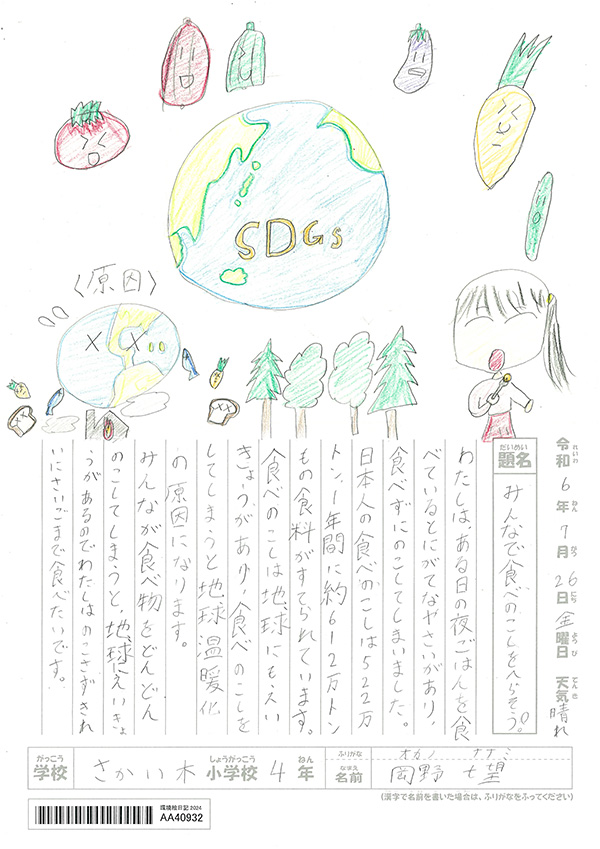 SDGs
〈原因〉
令和6年7月26日金曜日 天気 晴れ
れいわ ねん がつ にち ようび てんき
だいめい
題名 みんなで食べのこしをへらそう。
わたしは、ある日の夜ごはんを食
べているとにがてなやさいがあり、
食べずにのこしてしまいました。
日本人の食べのこしは522万
トン。1年間に約612万トン
もの食料がすてられています。
食べのこしは地球にもえい
きょうがあり、食べのこしを
してしまうと地球温暖化
の原因になります。
みんなが食べ物をどんどん
のこしてしまうと、地球にえいきょ
うがあるのでわたしはのこさずきれ
いにさいごまで食べたいです。
がっこう しょうがっこう ねん ふりがな オカノ ナナミ
学校 さかい木 小学校 4年 なまえ 名前 岡野 七望
(漢字で名前を書いた場合は、ふりがなをふってください)
環境絵日記 2024
AA40932